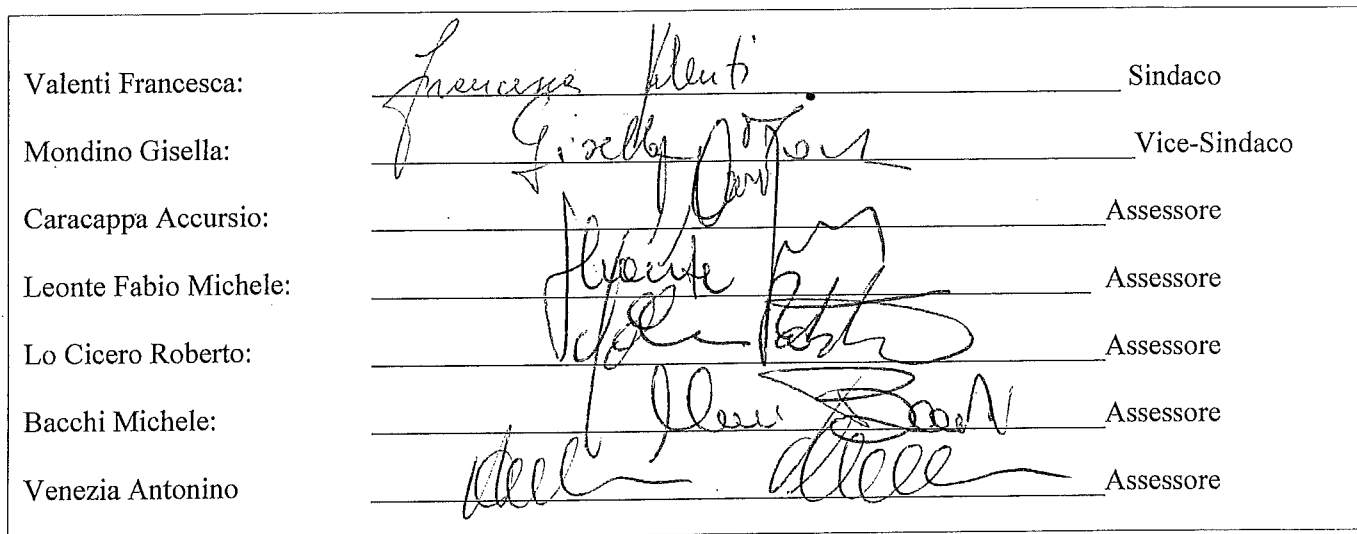 Valenti Francesca: Francesca Valenti Sindaco
Mondino Gisella: Gisella Vice-Sindaco
Caracappa Accursio: Assessore
Leonte Fabio Michele: Assessore
Lo Cicero Roberto: Assessore
Bacchi Michele: Assessore
Venezia Antonino Assessore